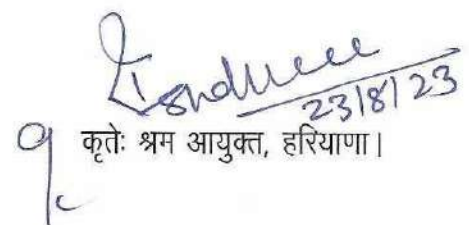 23/8/23
कृतेः श्रम आयुक्त, हरियाणा।